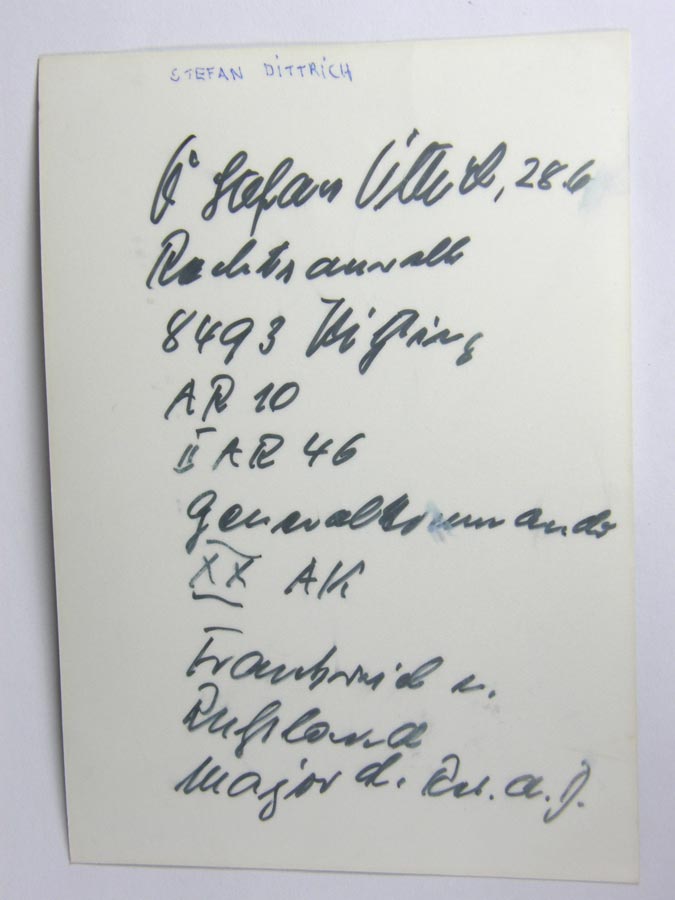 STEFAN DITTRICH
Dr Stefan Dittrich, 28.6
Rechtsanwalt
8493 Kötzting
AR 10
II AR 46
Generalkommando
XX AK
Frankreich u.
Rußland
Major d. Res. a. D.